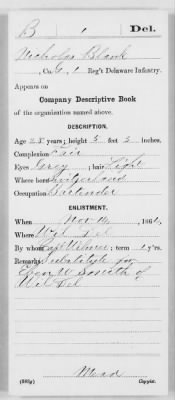 B 1 Del.
Nicholas Blank
, Co. G, 1 Reg't Delaware Infantry.
Appears on
Company Descriptive Book
of the organization named above.
DESCRIPTION.
Age 28 years; height 5 feet 5 inches.
Complexion Fair
Eyes Grey ; hair Light
Where born Switzerland
Occupation Bartender
ENLISTMENT.
When Nov 14, 1864.
Where Wil Del
By whom Capt Wilmer; term 1 y'rs.
Remarks Substitute for
W Smith of
Wil Del
Mead
Copyist.